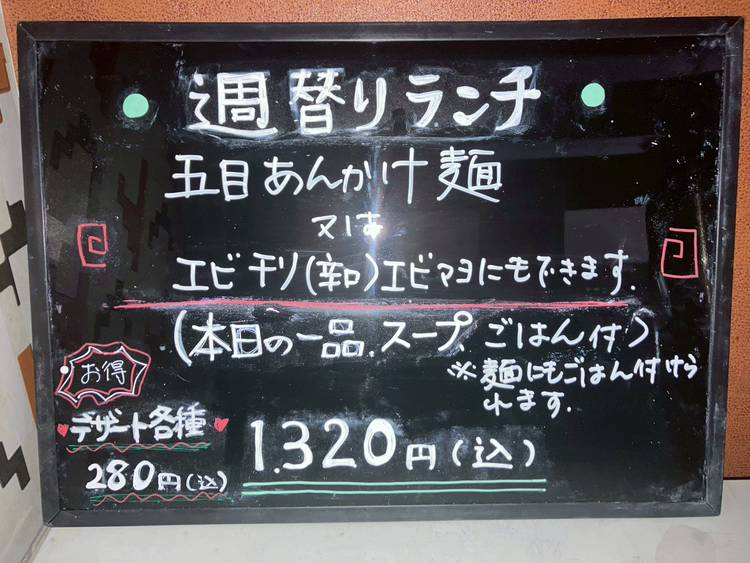 週替りランチ
五目あんかけ麺
又は
エビチリ(辛口)エビマヨにもできます.
(本日の一品.スープ、ごはん付)
※麺にもごはん付けら
れます.
お得
デザート各種
280円(込)
1.320円(込)